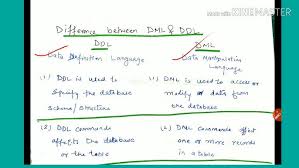 Made with KINEMASTER
Difference between DML & DDL
DDL
DML
Data Definition Language
Data Manipulation
Language
(1) DDL is used to
specify the database
schema/structure
(1) DML is used to access or
modify or data from
the database
(2) DDL commands
affects the database
or the table
(2) DML Commands affect
one or more records
in a table